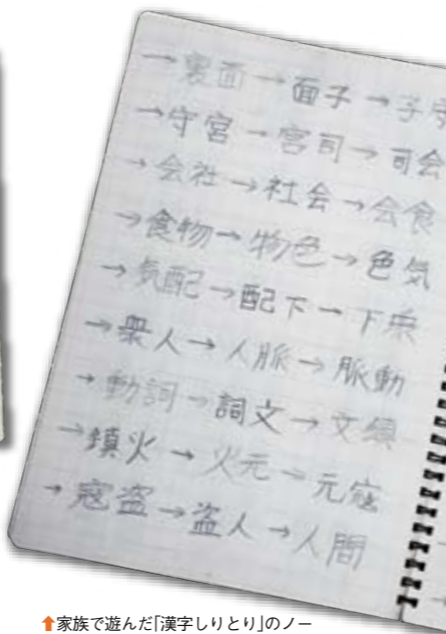 →裏面→面子→子守
→守宮→宮司→司会
→会社→社会→会食
→食物→物色→色気
→気配→配下→下衆
→衆人→人脈→脈動
→動詞→詞文→文鎮
→鎮火→火元→元寇
→寇盗→盗人→人間
⬆家族で遊んだ「漢字しりとり」のノー